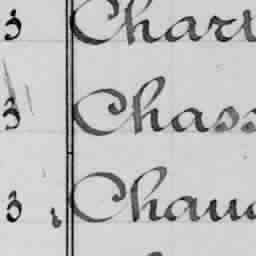 3 Chart
3 Chass
3 Chau